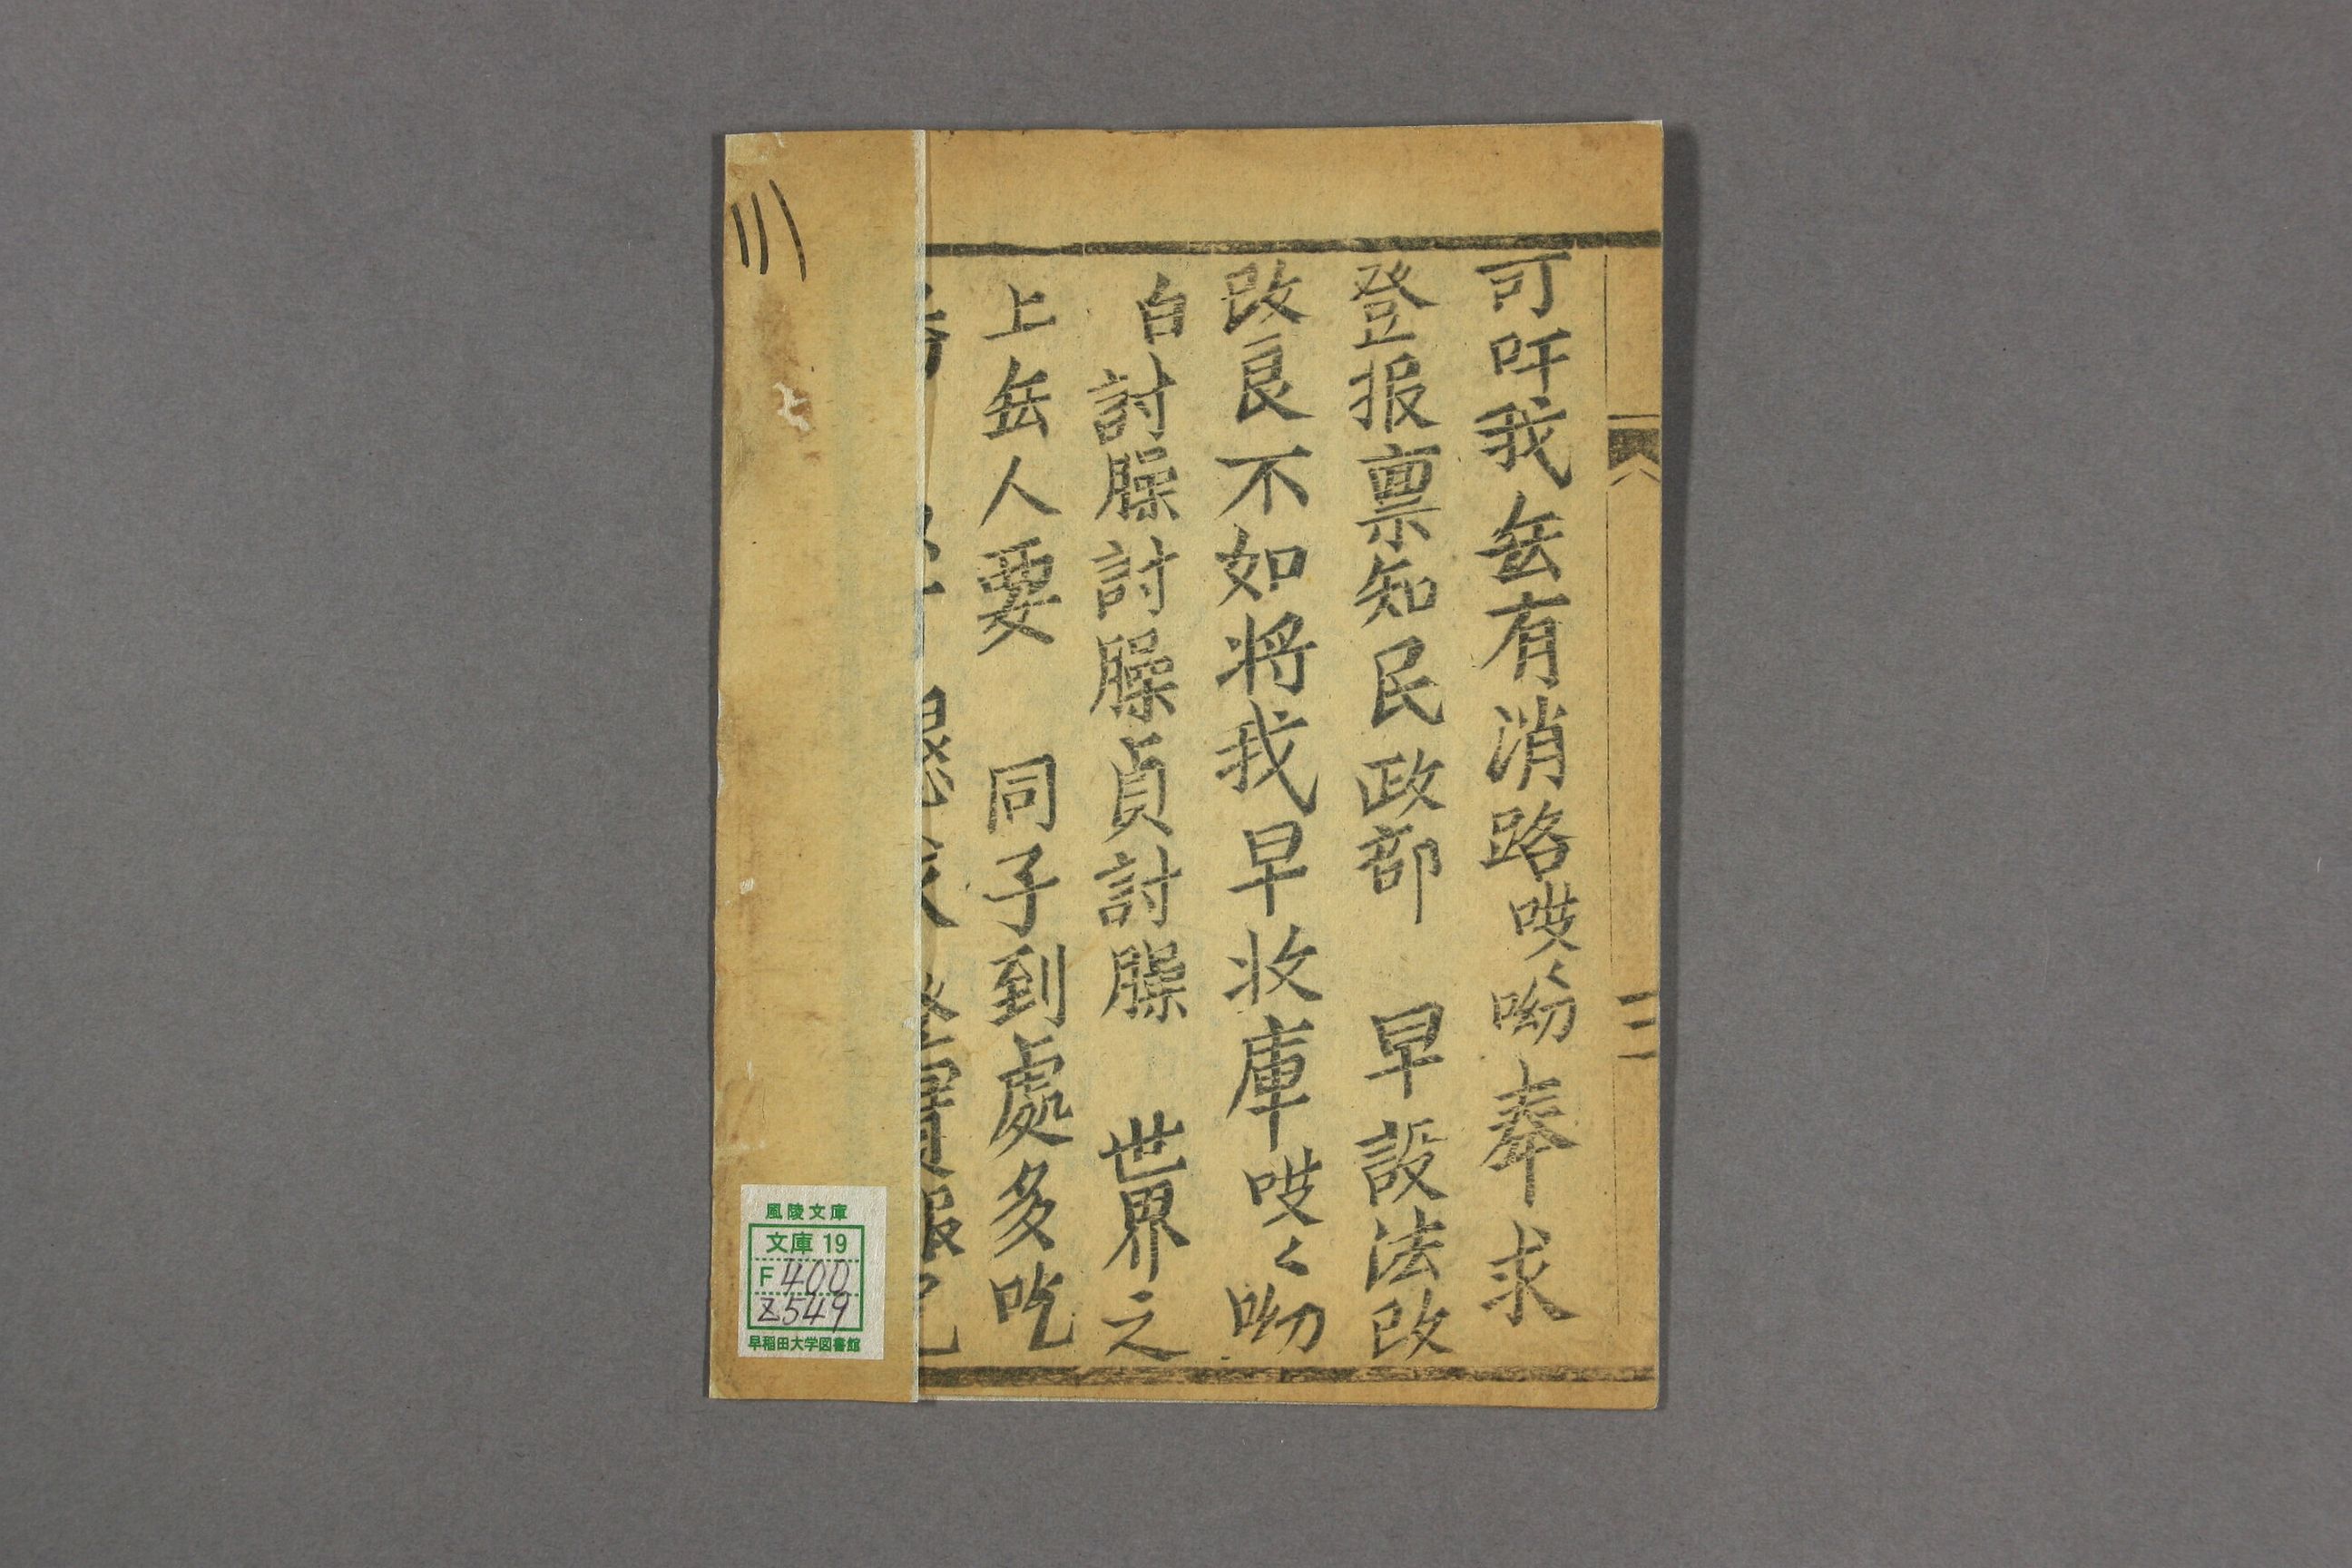 可吁我缶有消路哎〻呦奉求
登报禀知民政部　早設法改
改良不如將我早收庫哎〻呦
白討臊討臊貞討臊　世界之
上缶人要　同子到處多吃
三
風陵文庫
文庫 19
F 400
Z549
早稲田大学図書館